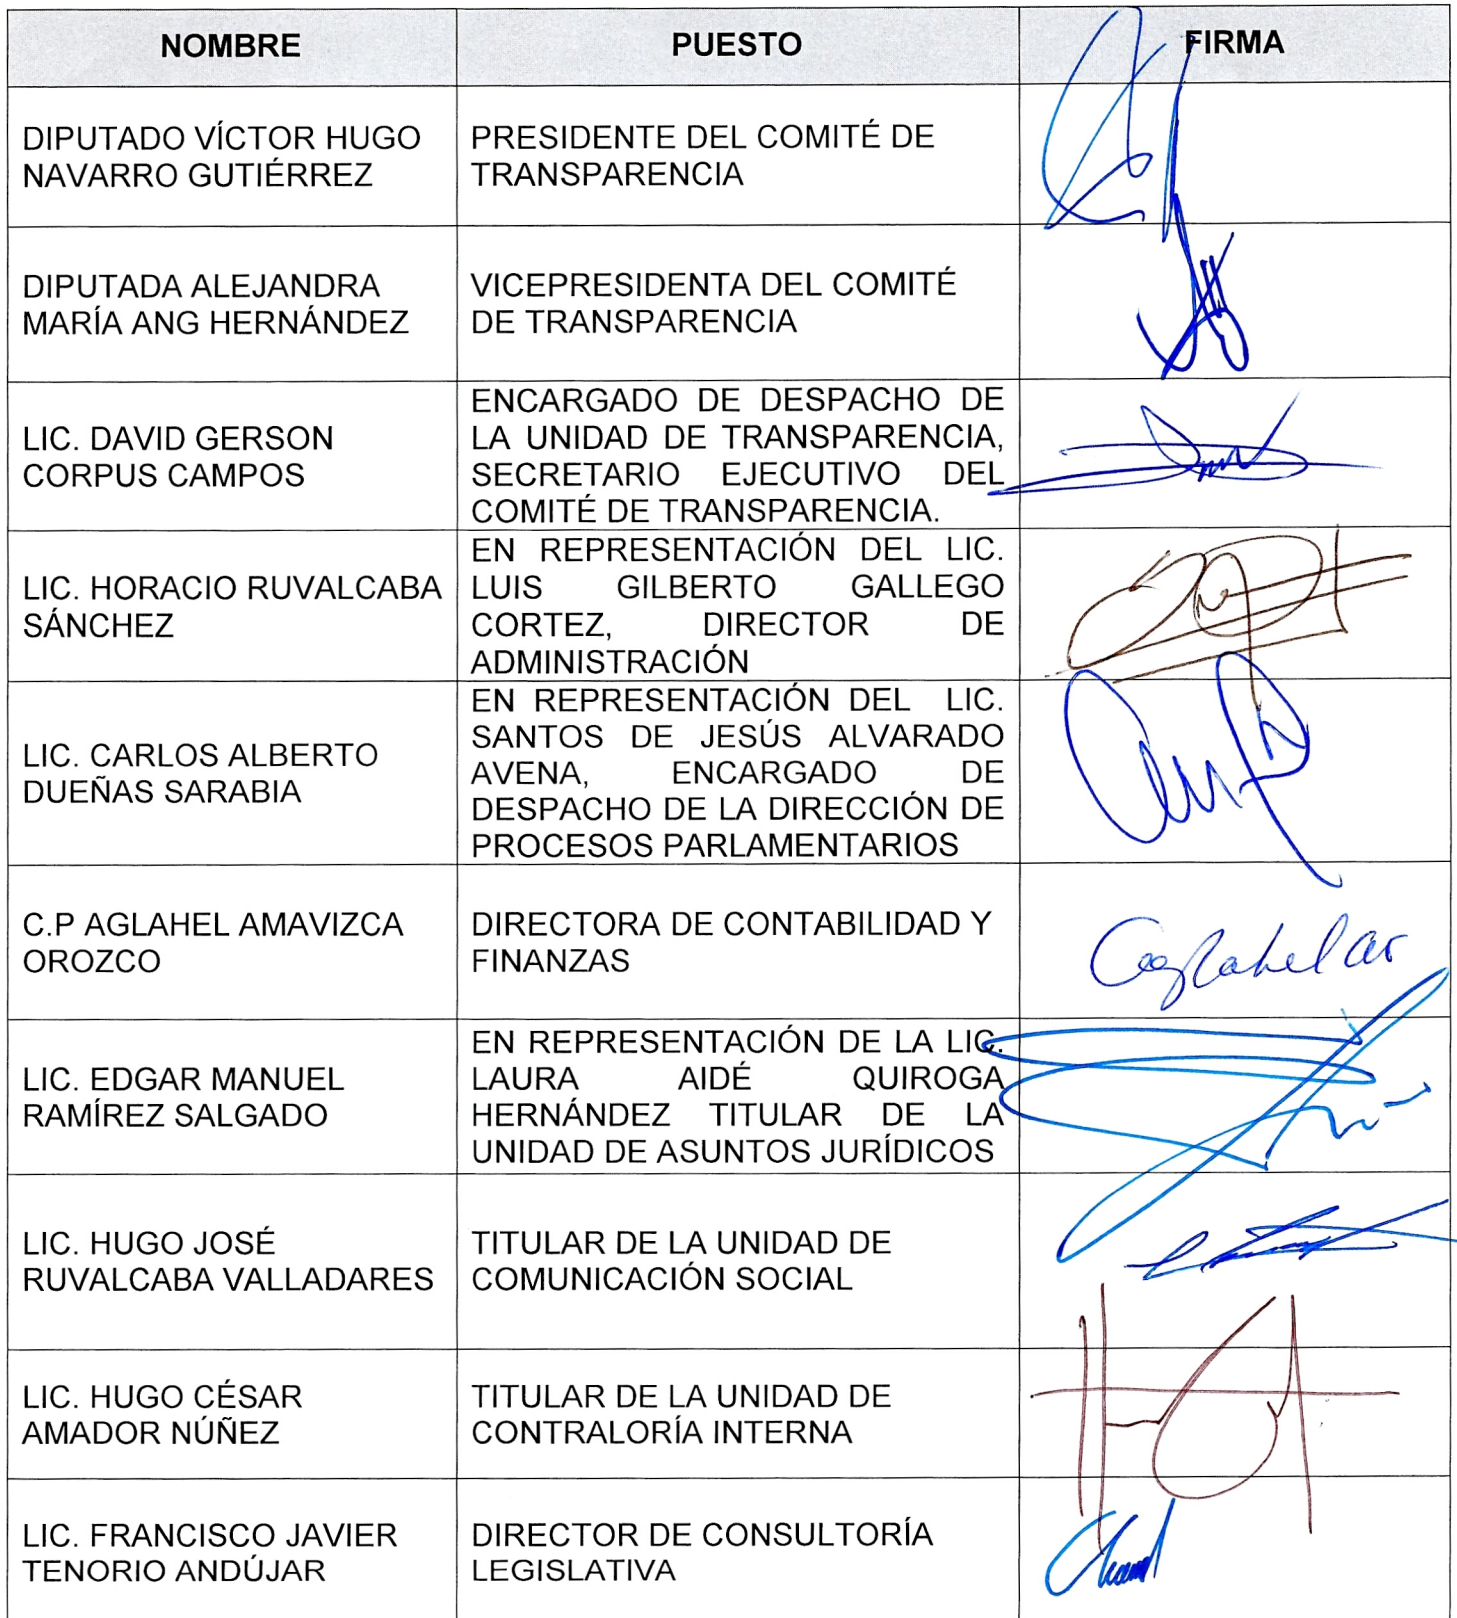 NOMBRE PUESTO FIRMA
DIPUTADO VÍCTOR HUGO
NAVARRO GUTIÉRREZ
PRESIDENTE DEL COMITÉ DE
TRANSPARENCIA
DIPUTADA ALEJANDRA
MARÍA ANG HERNÁNDEZ
VICEPRESIDENTA DEL COMITÉ
DE TRANSPARENCIA
LIC. DAVID GERSON
CORPUS CAMPOS
ENCARGADO DE DESPACHO DE
LA UNIDAD DE TRANSPARENCIA,
SECRETARIO EJECUTIVO DEL
COMITÉ DE TRANSPARENCIA.
LIC. HORACIO RUVALCABA
SÁNCHEZ
EN REPRESENTACIÓN DEL LIC.
LUIS GILBERTO GALLEGO
CORTEZ, DIRECTOR DE
ADMINISTRACIÓN
LIC. CARLOS ALBERTO
DUEÑAS SARABIA
EN REPRESENTACIÓN DEL LIC.
SANTOS DE JESÚS ALVARADO
AVENA, ENCARGADO DE
DESPACHO DE LA DIRECCIÓN DE
PROCESOS PARLAMENTARIOS
C.P AGLAHEL AMAVIZCA
OROZCO
DIRECTORA DE CONTABILIDAD Y
FINANZAS
LIC. EDGAR MANUEL
RAMÍREZ SALGADO
EN REPRESENTACIÓN DE LA LIC.
LAURA AIDÉ QUIROGA
HERNÁNDEZ TITULAR DE LA
UNIDAD DE ASUNTOS JURÍDICOS
LIC. HUGO JOSÉ
RUVALCABA VALLADARES
TITULAR DE LA UNIDAD DE
COMUNICACIÓN SOCIAL
LIC. HUGO CÉSAR
AMADOR NÚÑEZ
TITULAR DE LA UNIDAD DE
CONTRALORÍA INTERNA
LIC. FRANCISCO JAVIER
TENORIO ANDÚJAR
DIRECTOR DE CONSULTORÍA
LEGISLATIVA